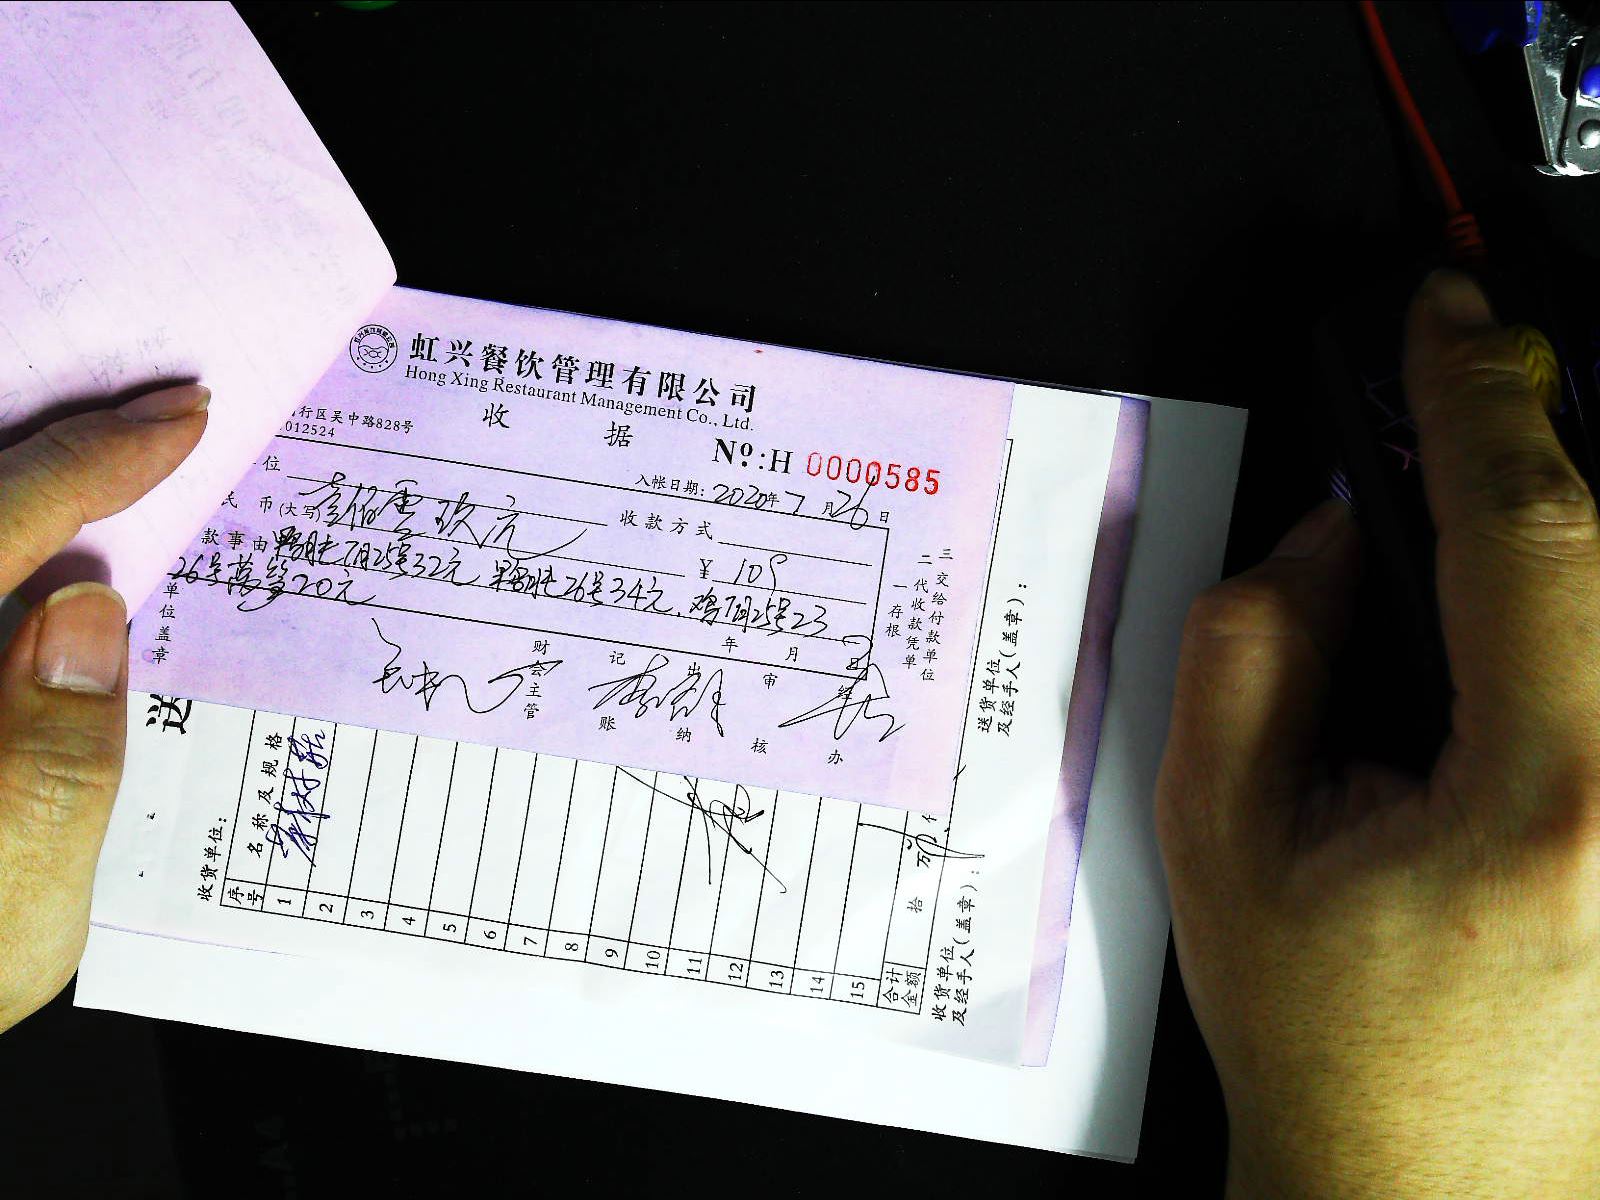 虹兴餐饮管理有限公司
Hong Xing Restaurant Management Co., Ltd.
收 据
行区吴中路828号
012524
No:H 0000585
入帐日期: 2020年7月26日
位
收款方式
民 币(大写) 壹佰零玖元
¥ 109
款事由 7月25号32元 26号34元、鸡7月25号23
26号 20元
年 月 日
单位盖章
财会主管
记账
出纳
审核
经办
一存根
二代收款凭单
三交给付款单位
送
收货单位:
序号
名称及规格
1
2
3
4
5
6
7
8
9
10
11
12
13
14
15
合计金额
拾 万
收货单位及经手人(盖章):
送货单位及经手人(盖章):